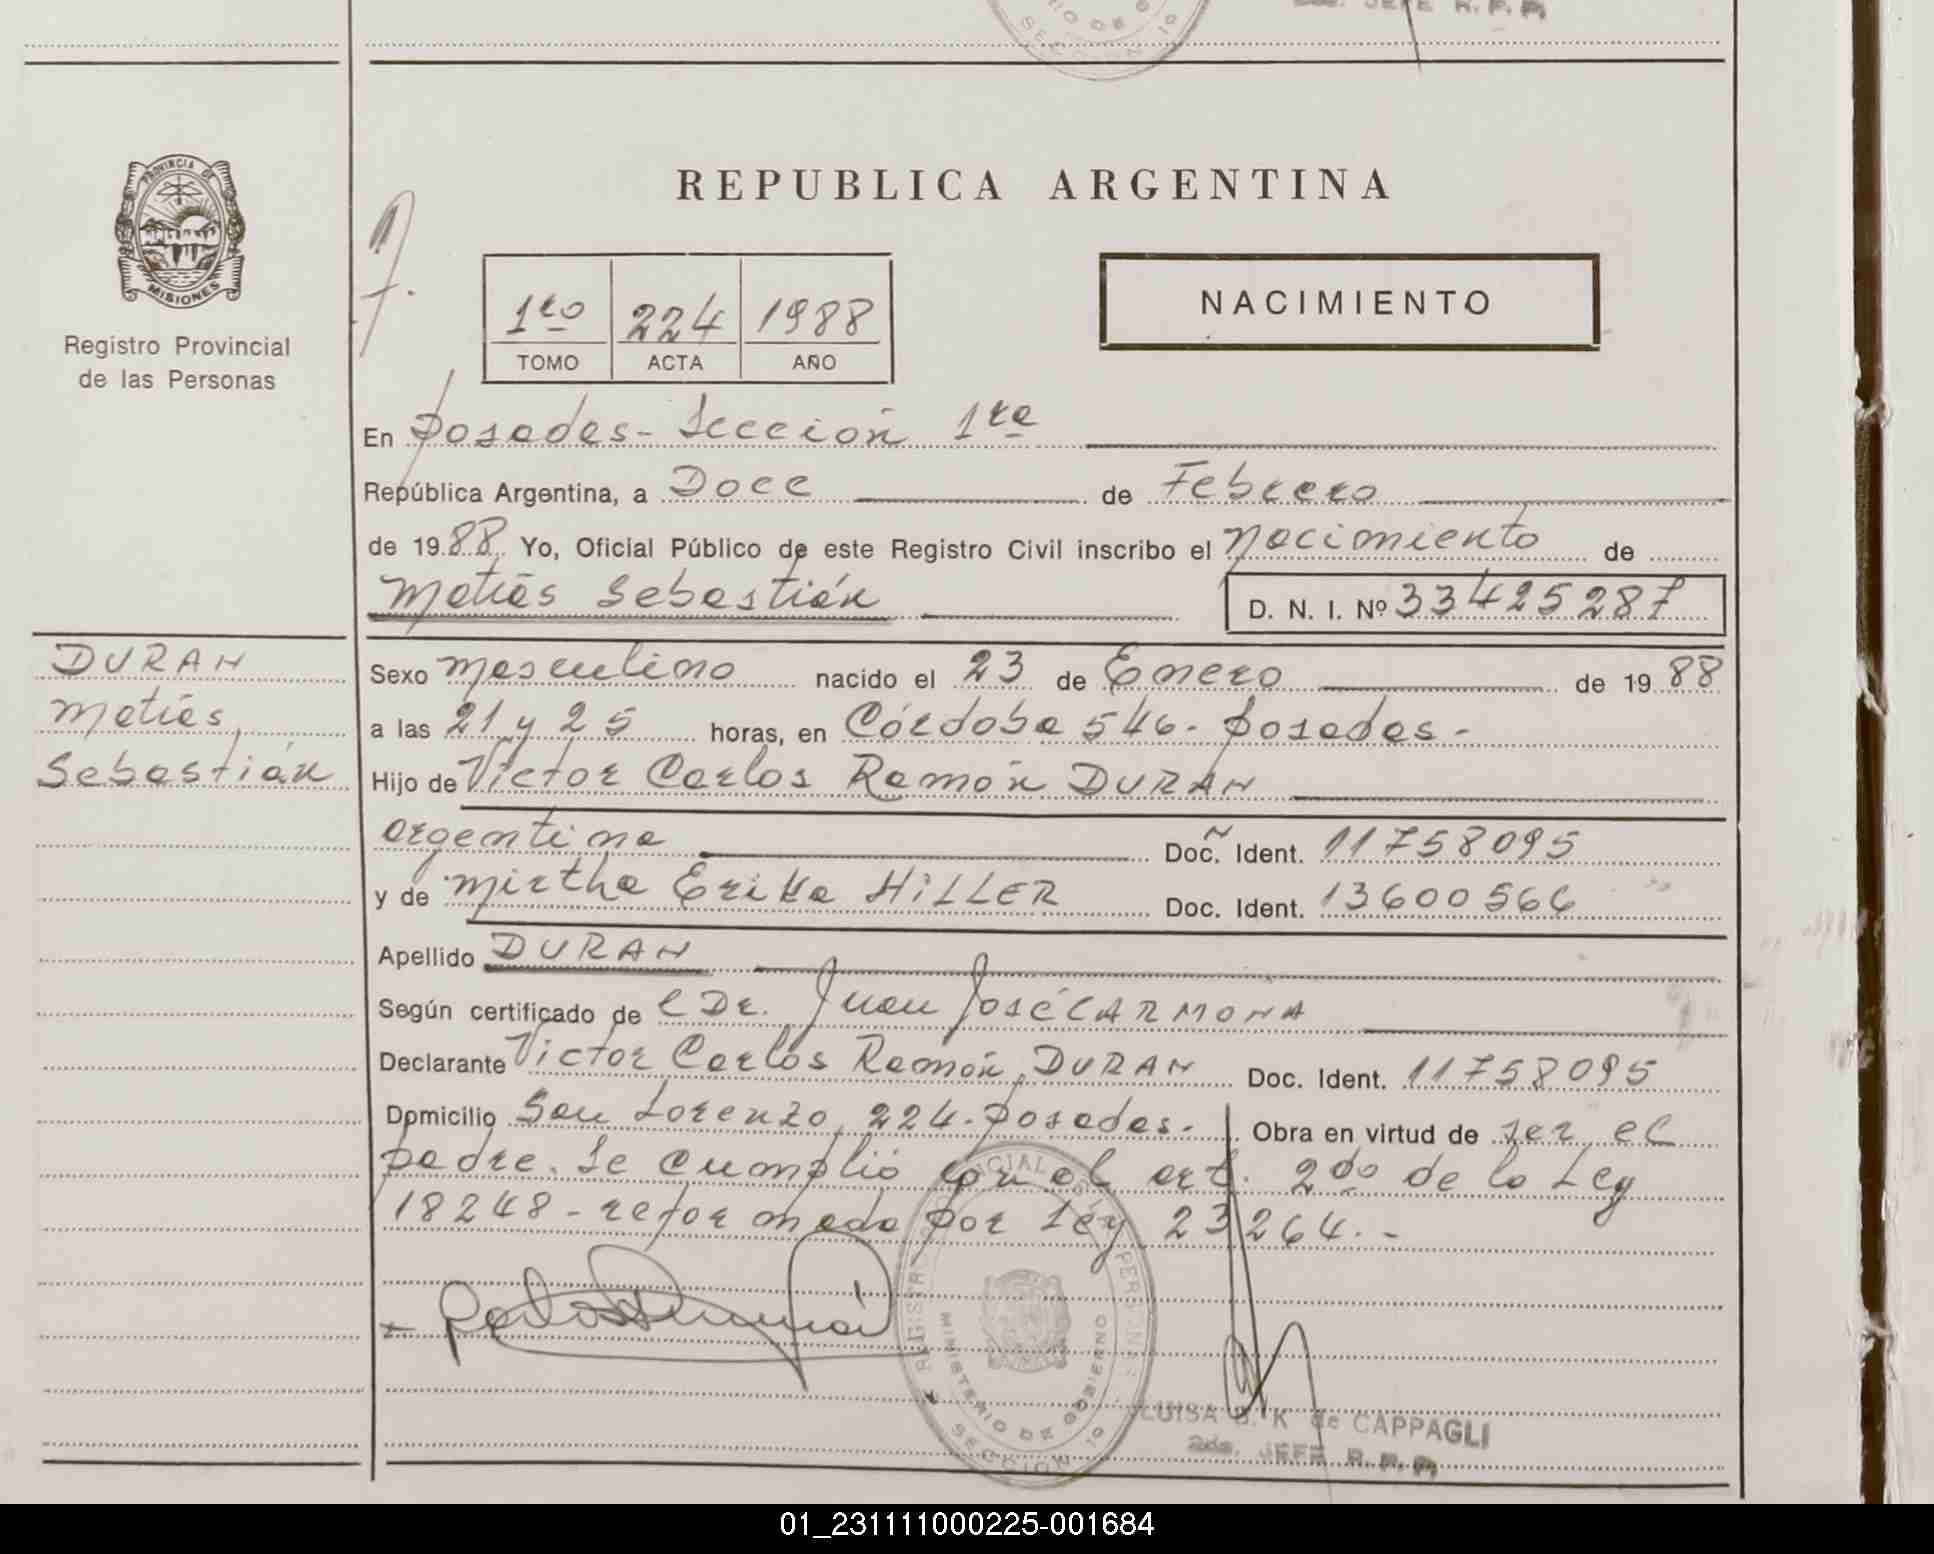 SECCION 1º
2do. JEFE R. P. P.
PROVINCIA DE
MISIONES
Registro Provincial
de las Personas
REPUBLICA ARGENTINA
1ro 224 1988
TOMO ACTA AÑO
NACIMIENTO
En Posadas - Sección 1ra
República Argentina, a Doce de Febrero
de 1988 Yo, Oficial Público de este Registro Civil inscribo el Nacimiento de
Matías Sebastián D. N. I. Nº 33425287
DURAN
Matías
Sebastián
Sexo masculino nacido el 23 de Enero de 1988
a las 21 y 25 horas, en Córdoba 546 - Posadas -
Hijo de Víctor Carlos Ramón DURAN
argentina Doc. Ident. 11758095
y de Mirtha Erika HiLLER Doc. Ident. 13600566
Apellido DURAN
Según certificado de el Dr. Juan José CARMONA
Declarante Víctor Carlos Ramón DURAN Doc. Ident. 11758095
Domicilio San Lorenzo 224 - Posadas - Obra en virtud de ser el
padre. Se cumplió con el art. 2do de la Ley
18248 - reformada por Ley 23264. -
REGISTRO PROVINCIAL DE LAS PERSONAS
MINISTERIO DE GOBIERNO
SECCION 1º
LUISA B. K de CAPPAGLI
2do. JEFE R. P. P.
01_231111000225-001684